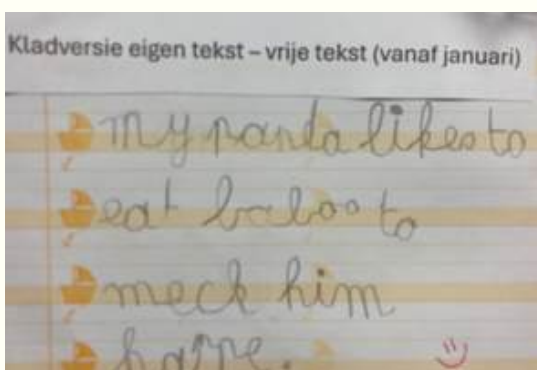 Kladversie eigen tekst – vrije tekst (vanaf januari)
my panda likes to
eat baboo to
meck him
happe.